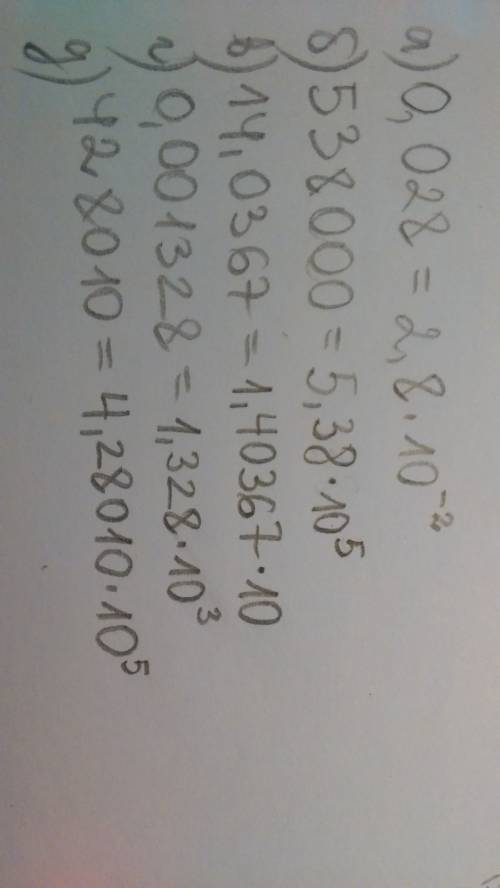 а) 0,028 = 2,8·10⁻²
б) 538000 = 5,38·10⁵
в) 14,0367 = 1,40367·10
г) 0,001328 = 1,328·10³
д) 428010 = 4,28010·10⁵